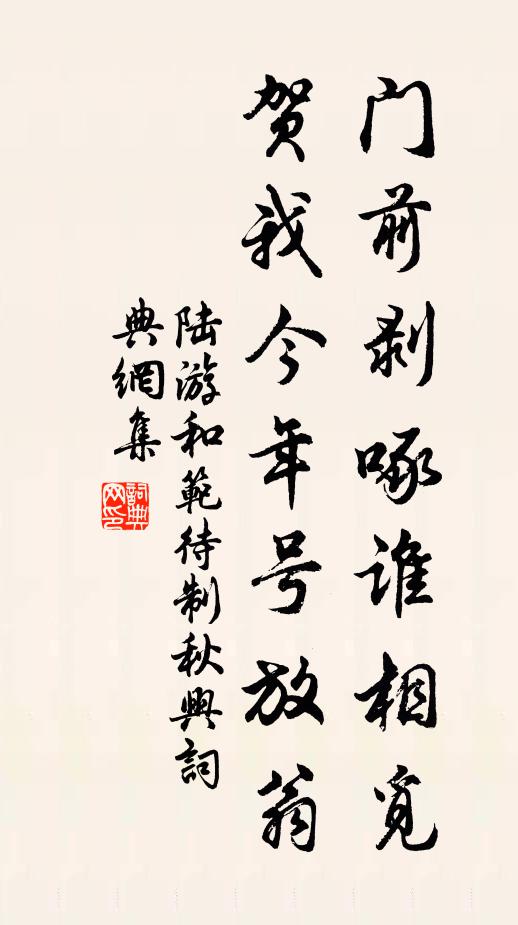 门前剥啄谁相觅
贺我今年号放翁
陆游和範待制秋興詞
典網集
詞典
网印